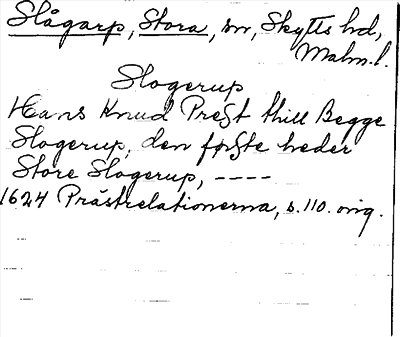 Slågarp, Stora, sn, Skytts hd,
Malm.l.
Slogerup
Hans Knud Prest thill Begge
Slogerup, den første heder
Store Slogerup, ----
1624 Prästrelationerna, s.110. orig.